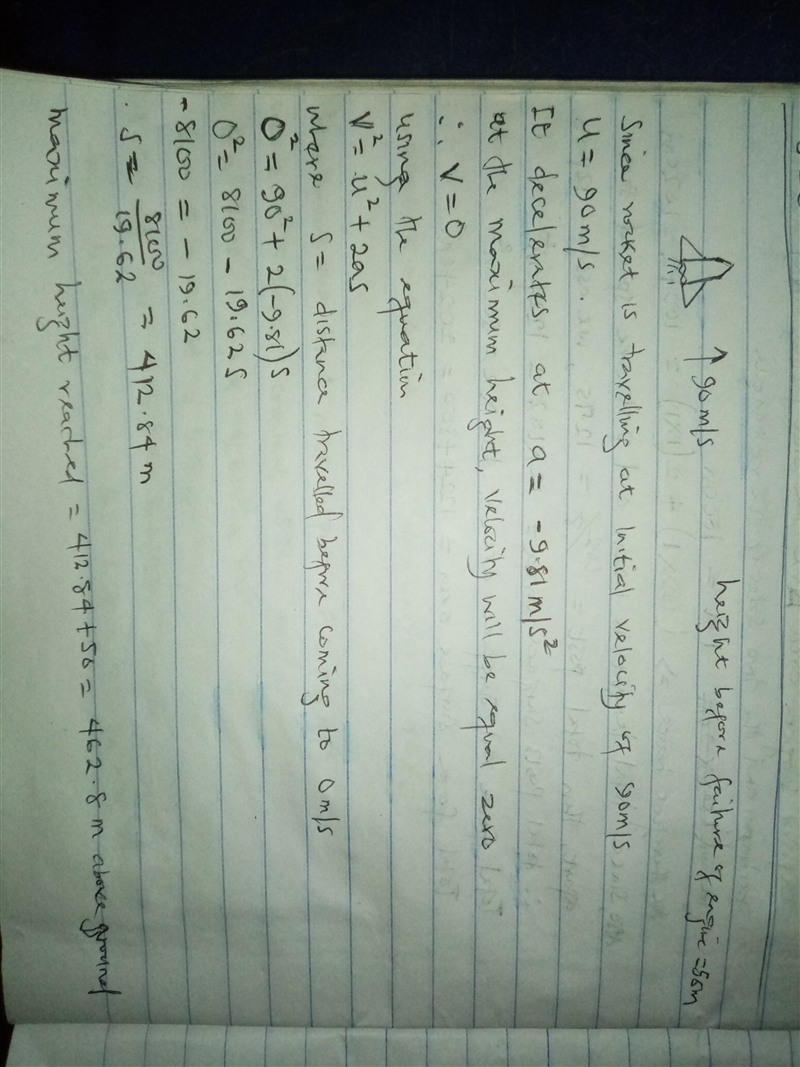 height before failure of engine = 50m
↑ 90 m/s
Since rocket is travelling at initial velocity of 90m/s
u = 90 m/s.
It decelerates at a = -9.81 m/s²
at the maximum height, velocity will be equal zero
∴ V = 0
using the equation
V² = u² + 2as
where s = distance travelled before coming to 0 m/s
0² = 90² + 2(-9.81)s
0² = 8100 - 19.62s
-8100 = -19.62
. s = 8100/19.62 = 412.84 m
maximum height reached = 412.84+50 = 462.8 m above ground